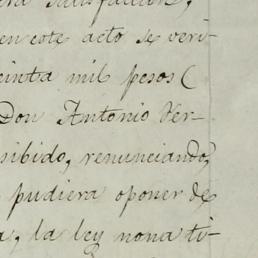 era satisfaccion,
en este acto se veri-
cinta mil pesos (
Don Antonio Ver-
sibido, renunciando,
pudiera oponer de
a, la ley nona ti-